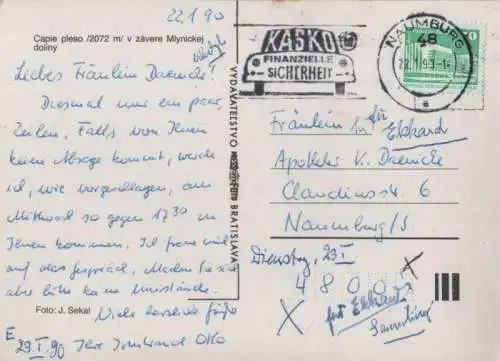 22.1.90
Capie pleso /2072 m/ v závere Mlynickej
doliny
Liebes Fräulein Daenicke!
Diesmal nur ein paar
Zeilen. Falls von Ihnen
keine Absage kommt, werde
ich, wie vorgeschlagen, am
Mittwoch so gegen 17 30 zu
Ihnen kommen. Ich freue mich
auf das Gespräch. Machen Sie sich
aber bitte keine Umstände.
Viele herzliche Grüße
Ihre Irmtraud Otto
Foto: J. Sekal
E
23.I.90
VYDAVATEĽSTVO
BRATISLAVA
KASKO
FINANZIELLE
SICHERHEIT
NAUMBURG
48
22.1.90-14
a
Fräulein
für Ekkhardt
Apotheker K. Daenicke
Claudiusstr. 6
Naumburg/S
Dienstag, 23.I
4800
X
X